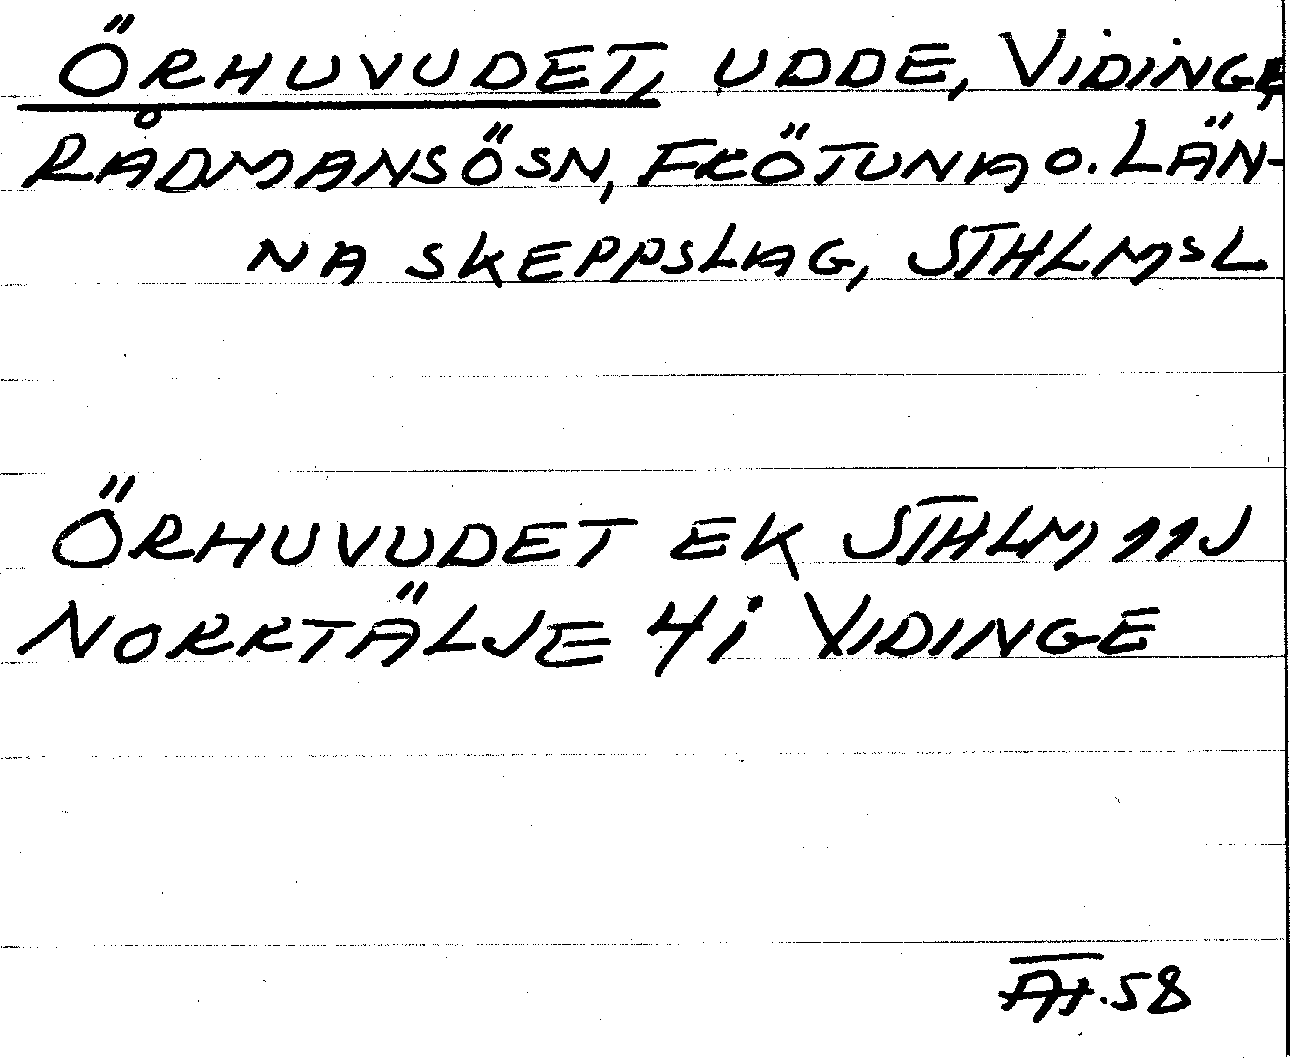 ÖRHUVUDET, UDDE, VIDINGE,
RÅDMANSÖ SN, FRÖTUNA O. LÄN-
NA SKEPPSLAG, STHLMS L
ÖRHUVUDET EK STHLM 11J
NORRTÄLJE 4i VIDINGE
58